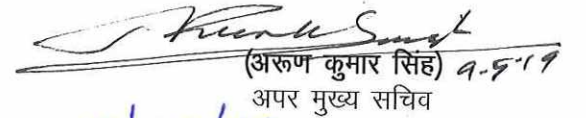 (अरूण कुमार सिंह) 9-5-19
अपर मुख्य सचिव